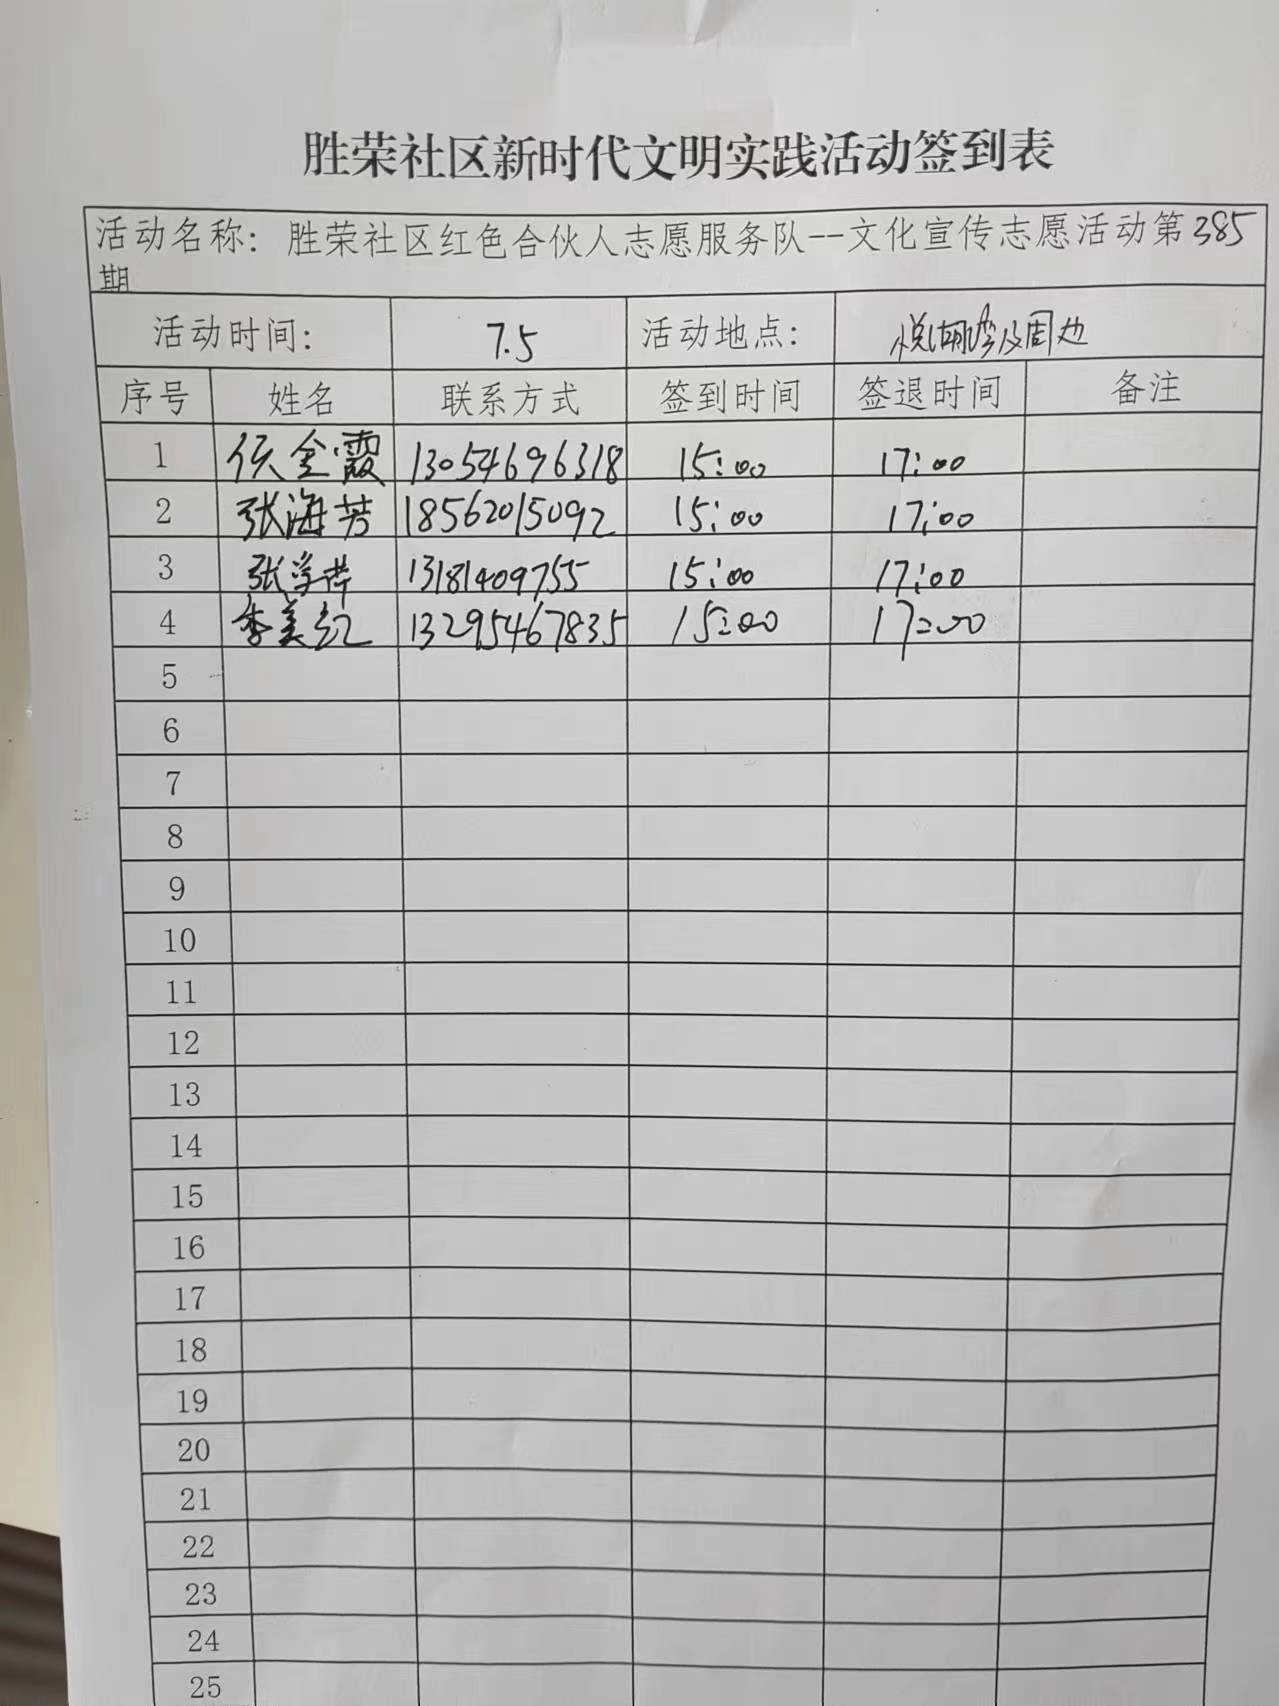 胜荣社区新时代文明实践活动签到表
活动名称：胜荣社区红色合伙人志愿服务队--文化宣传志愿活动第385
期
活动时间： 7.5 活动地点： 及周边
序号 姓名 联系方式 签到时间 签退时间 备注
1 金霞 13054696318 15:00 17:00
2 张海芳 18562015092 15:00 17:00
3 张学萍 13181409755 15:00 17:00
4 李美红 13295467835 15:00 17:00
5
6
7
8
9
10
11
12
13
14
15
16
17
18
19
20
21
22
23
24
25